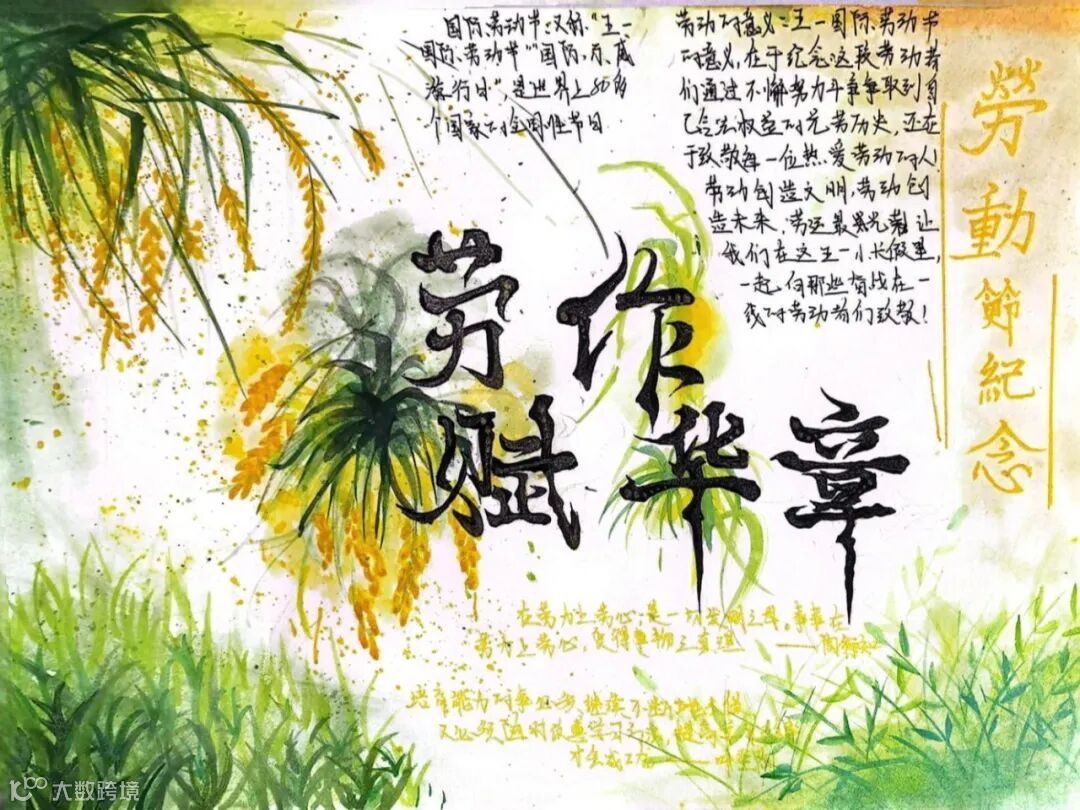 国际劳动节:又称“五一
国际劳动节”“国际示威
游行日”,是世界上80多
个国家的全国性节日
劳动的意义:五一国际劳动节
的意义,在于纪念这段劳动者
们通过不懈努力斗争争取到自
己合法权益的光荣历史,还在
于致敬每一位热爱劳动的人!
劳动创造文明,劳动创
造未来,劳动最光荣!让
我们在这五一小长假里,
一起向那些奋战在一
线的劳动者们致敬!
勞動節紀念
劳作
赋华章
在劳力上劳心,是一切发明之母,事事在
劳力上劳心,
之真理——陶行知
培育能力的事必须继续不断地去做
又必须随时改善学习方法,提高学习
才会成功
大数跨境